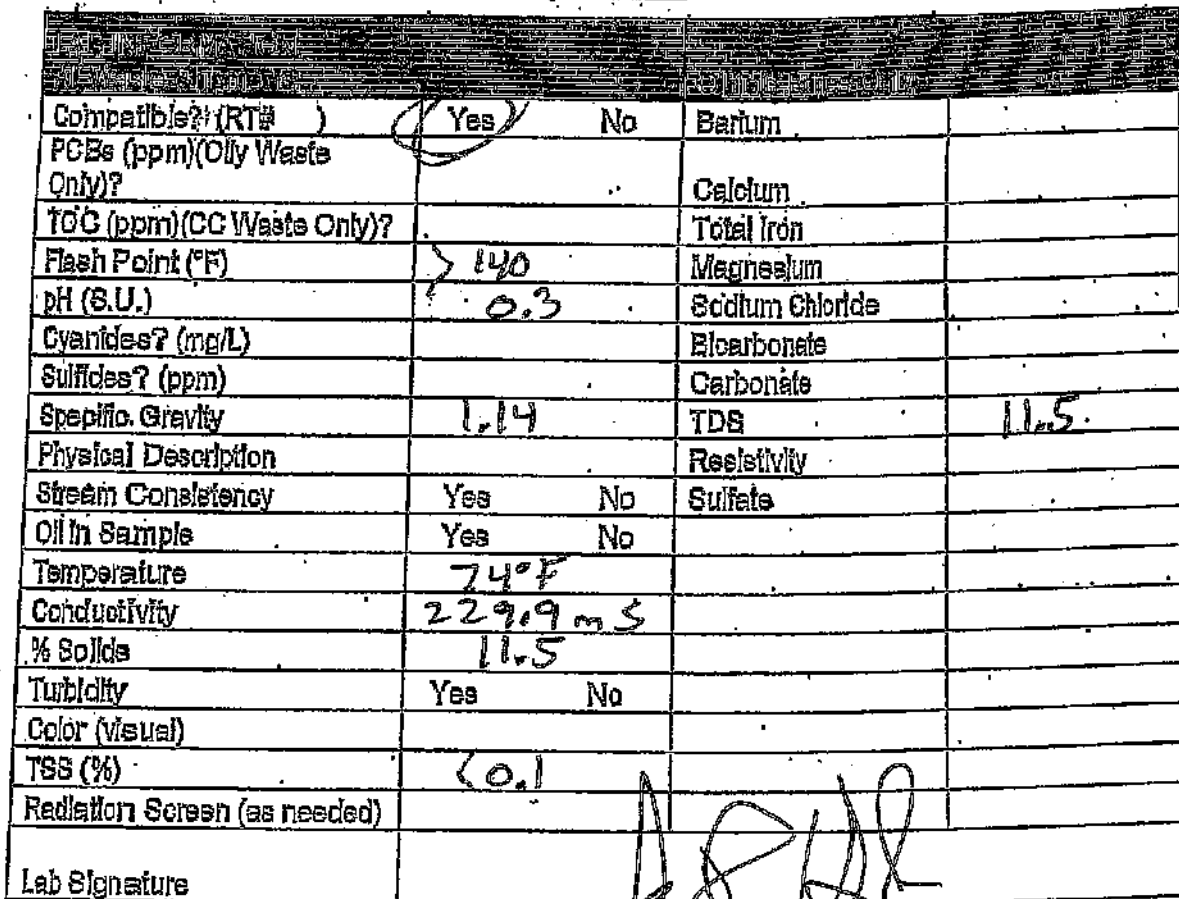 LAB INFORMATION
Compatible? (RT# ) Yes No Barium
PCBs (ppm)(Oily Waste
Only)? Calcium
TOC (ppm)(CC Waste Only)? Total Iron
Flash Point (°F) > 140 Magnesium
pH (S.U.) 0.3 Sodium Chloride
Cyanides? (mg/L) Bicarbonate
Sulfides? (ppm) Carbonate
Specific Gravity 1.14 TDS 11.5
Physical Description Resistivity
Stream Consistency Yes No Sulfate
Oil in Sample Yes No
Temperature 74°F
Conductivity 229.9 mS
% Solids 11.5
Turbidity Yes No
Color (visual)
TSS (%) <0.1
Radiation Screen (as needed)
Lab Signature